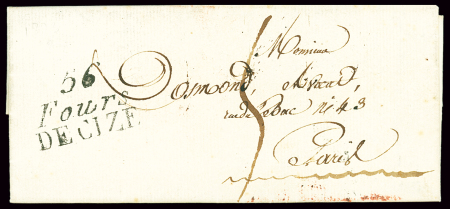 56
Fours
DECIZE
Monsieur
Osmond, avocat,
rue du Bac no 43
Paris
5